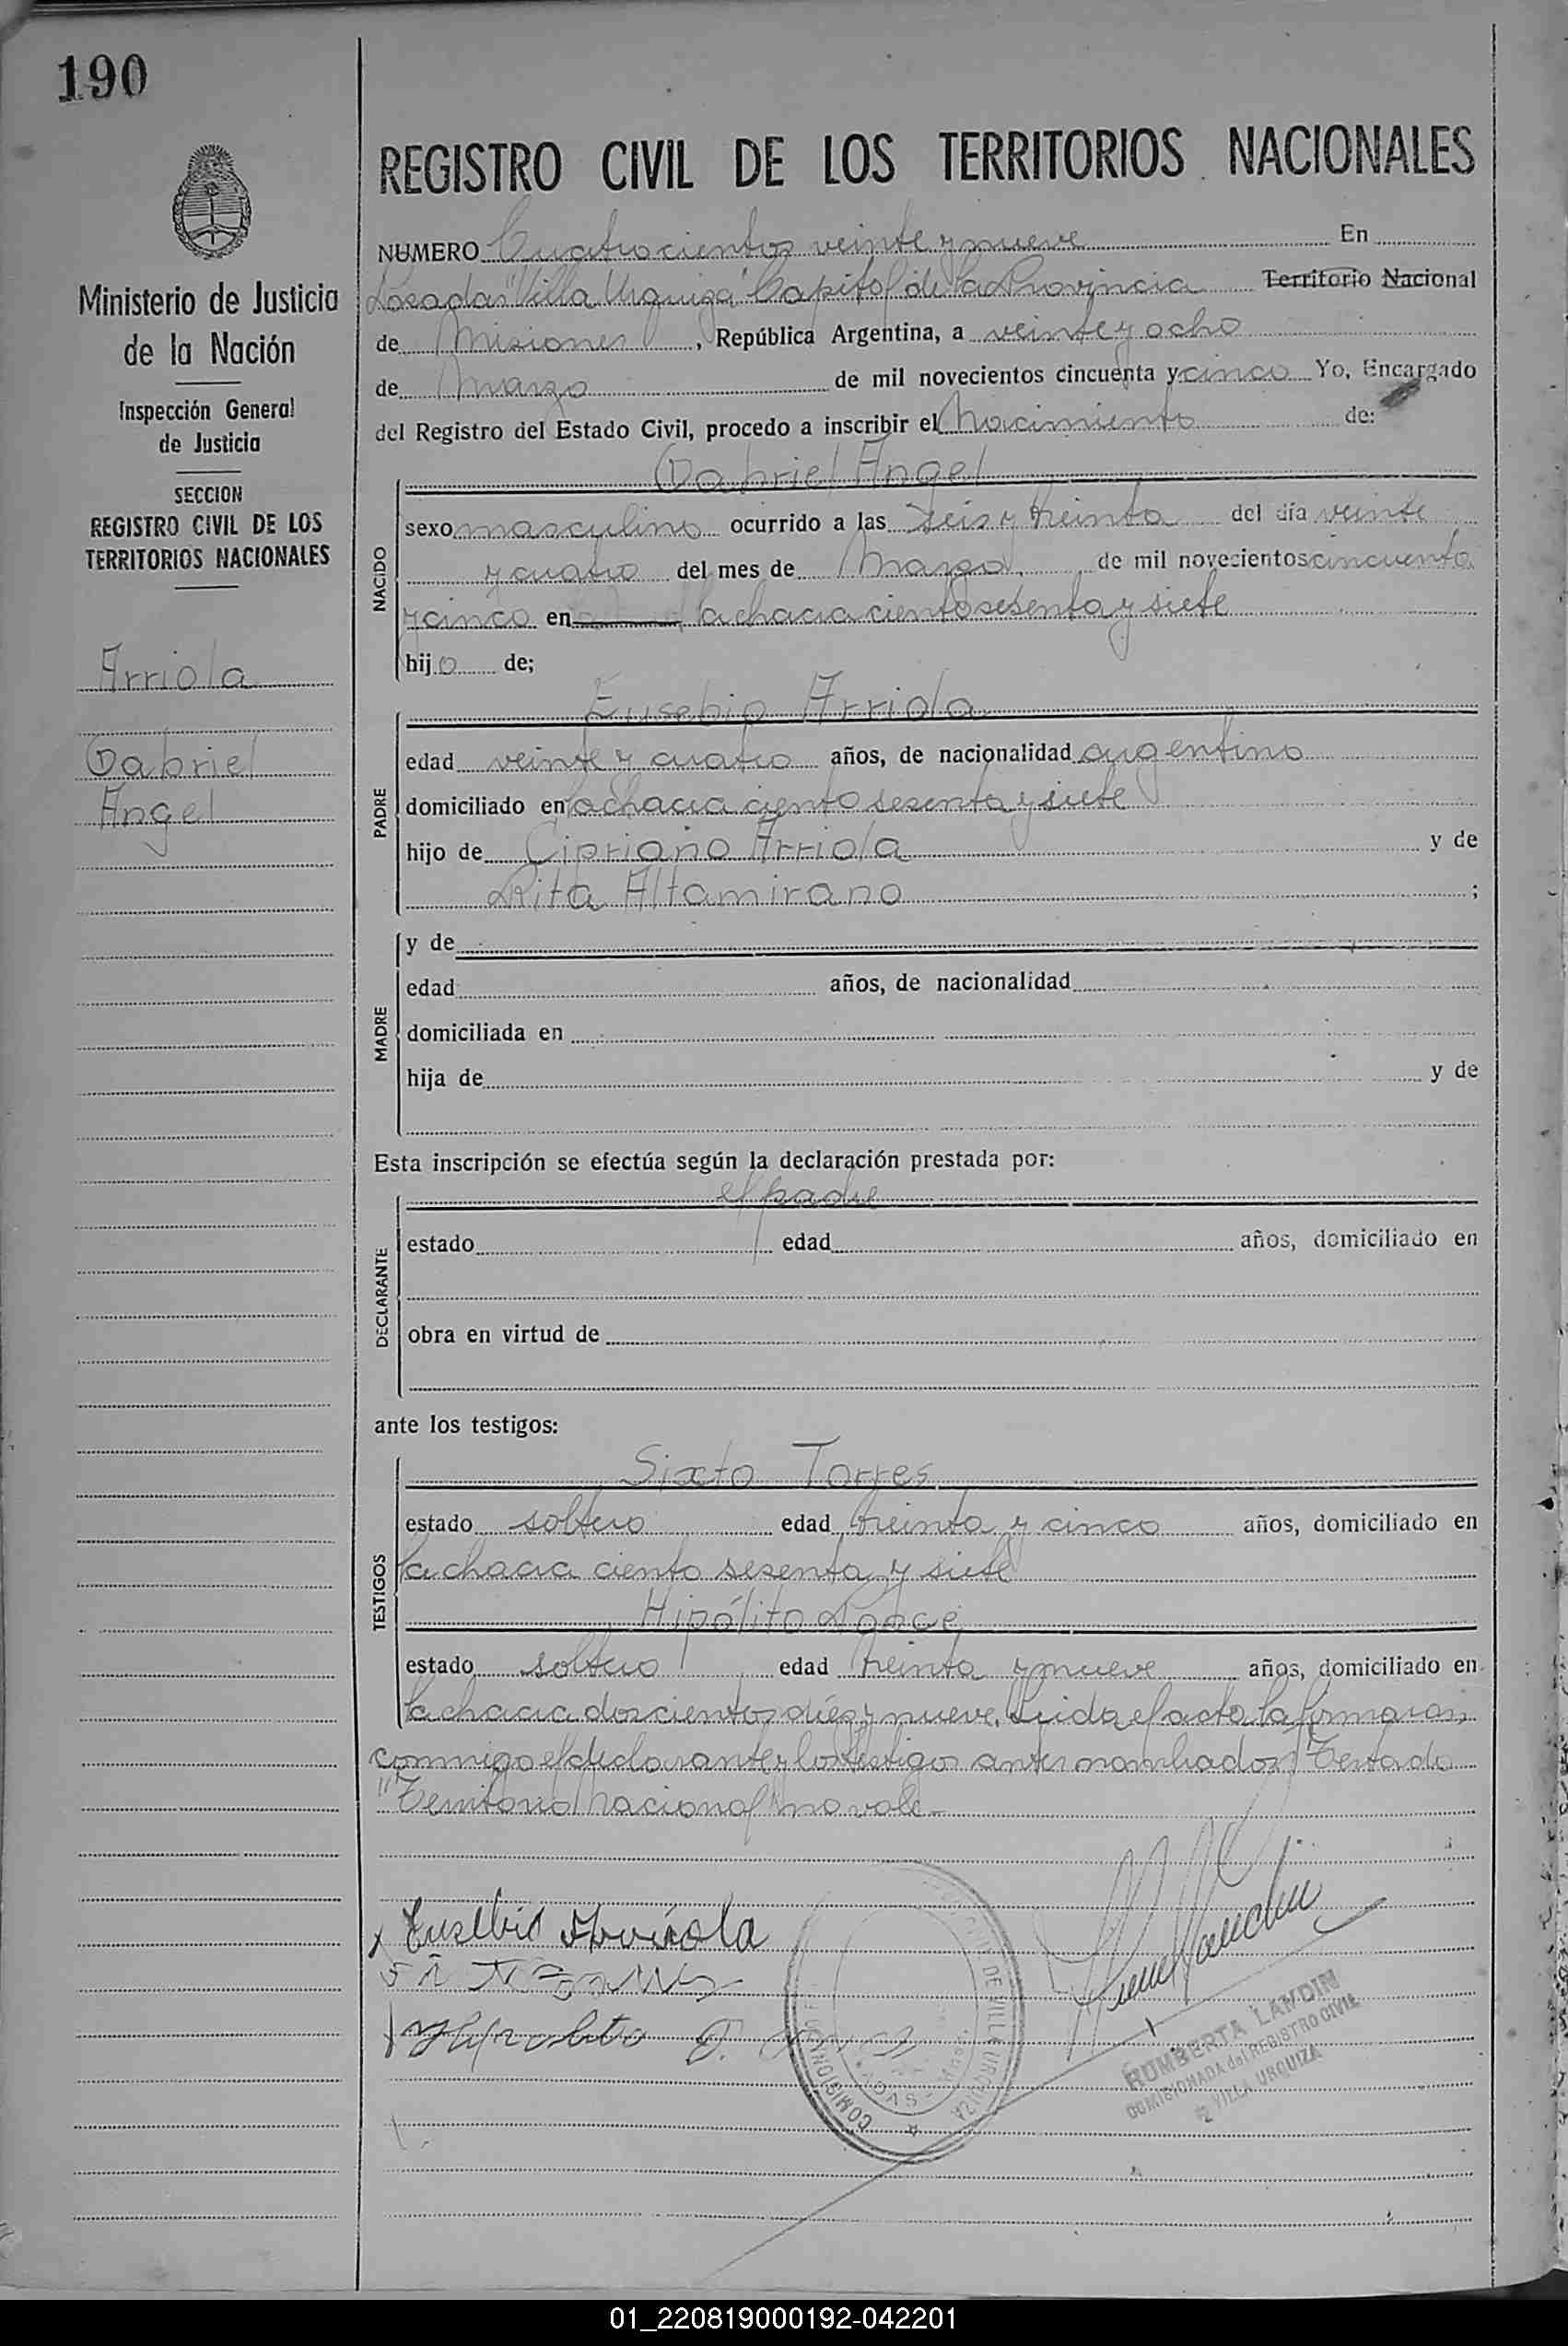 190
REGISTRO CIVIL DE LOS TERRITORIOS NACIONALES
Ministerio de Justicia
de la Nación
Inspección General
de Justicia
SECCION
REGISTRO CIVIL DE LOS
TERRITORIOS NACIONALES
Arriola
Gabriel
Angel
NUMERO Cuatrocientos veinte y nueve En
Posadas "Villa Urquiza" Capital de la Provincia Territorio Nacional
de Misiones, República Argentina, a veinte y ocho
de Marzo de mil novecientos cincuenta y cinco Yo, Encargado
del Registro del Estado Civil, procedo a inscribir el Nacimiento de:
Gabriel Angel
NACIDO
sexo masculino ocurrido a las seis y treinta del día veinte
y cuatro del mes de Marzo de mil novecientos cincuenta
y cinco en la chacra ciento sesenta y siete
hijo de;
Eusebio Arriola
PADRE
edad veinte y cuatro años, de nacionalidad argentino
domiciliado en la chacra ciento sesenta y siete
hijo de Cipriano Arriola y de
Rita Altamirano ;
MADRE
y de
edad años, de nacionalidad
domiciliada en
hija de y de
Esta inscripción se efectúa según la declaración prestada por:
el padre
DECLARANTE
estado edad años, domiciliado en
obra en virtud de
ante los testigos:
Sixto Torres
TESTIGOS
estado soltero edad treinta y cinco años, domiciliado en
la chacra ciento sesenta y siete
Hipólito Ponce
estado soltero edad treinta y nueve años, domiciliado en
la chacra doscientos diez y nueve. Leida el acta la firmaron
conmigo el declarante y los testigos antes nombrados. Testado
"Territorio Nacional" no vale.-
Eusebio Arriola
Hipolito
COMISION
DE VILLA URQUIZA
ROMBERTA LANDIN
COMISIONADA del REGISTRO CIVIL
VILLA URQUIZA
01_220819000192-042201